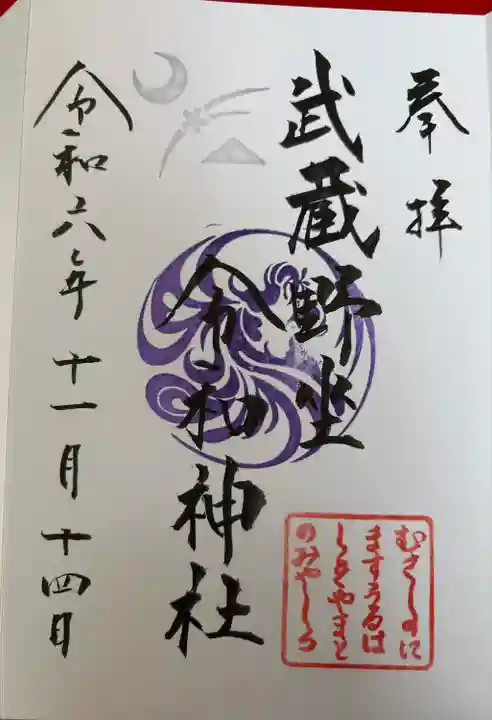 奉拝
武蔵野坐
令和神社
むさしのに
ますうるは
しきやまと
のみやしろ
令和六年十一月十四日